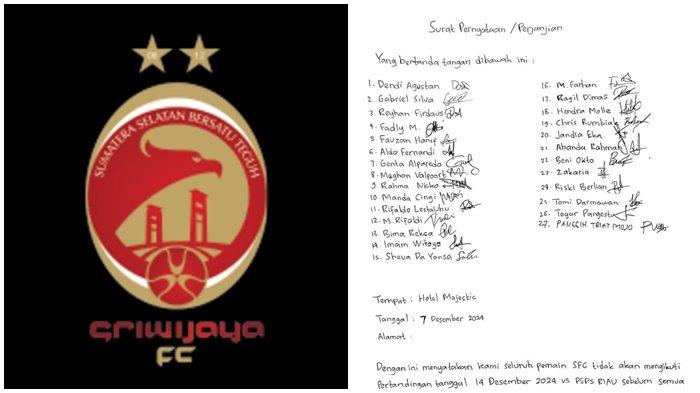 08 12
SUMATERA SELATAN BERSATU TEGUH
SRIWIJAYA
FC
Surat Pernyataan / Perjanjian
Yang bertanda tangan dibawah ini :
1. Dendi Agustan
2. Gabriel Silva
3. Reyhan Firdaus
4. Fadly M.
5. Fauzan Hanif
6. Aldo Fernandi
7. Genta Alparedo
8. Meghon Valpoort
9. Rahma Nicko
10. Manda Cingi
11. Rifaldo Lestaluhu
12. M. Rifaldi
13. Bima Reksa
14. Imam Witoyo
15. Sheva Da Yonsa
16. M. Farhan
17. Ragil Dimas
18. Hendra Molle
19. Chris Rumbiak
20. Jandia Eka
21. Abanda Rahman
22. Beni Okto
23. Zakaria
24. Riski Berlian
25. Tomi Darmawan
26. Tegar Pangestu
27. PANGGIH TRIAT MOJO
Tempat : Hotel Majestic
Tanggal : 7 Desember 2024
Alamat :
Dengan ini menyatakan kami seluruh pemain SFC tidak akan mengikuti
Pertandingan tanggal 14 Desember 2024 vs PSPS RIAU sebelum semua